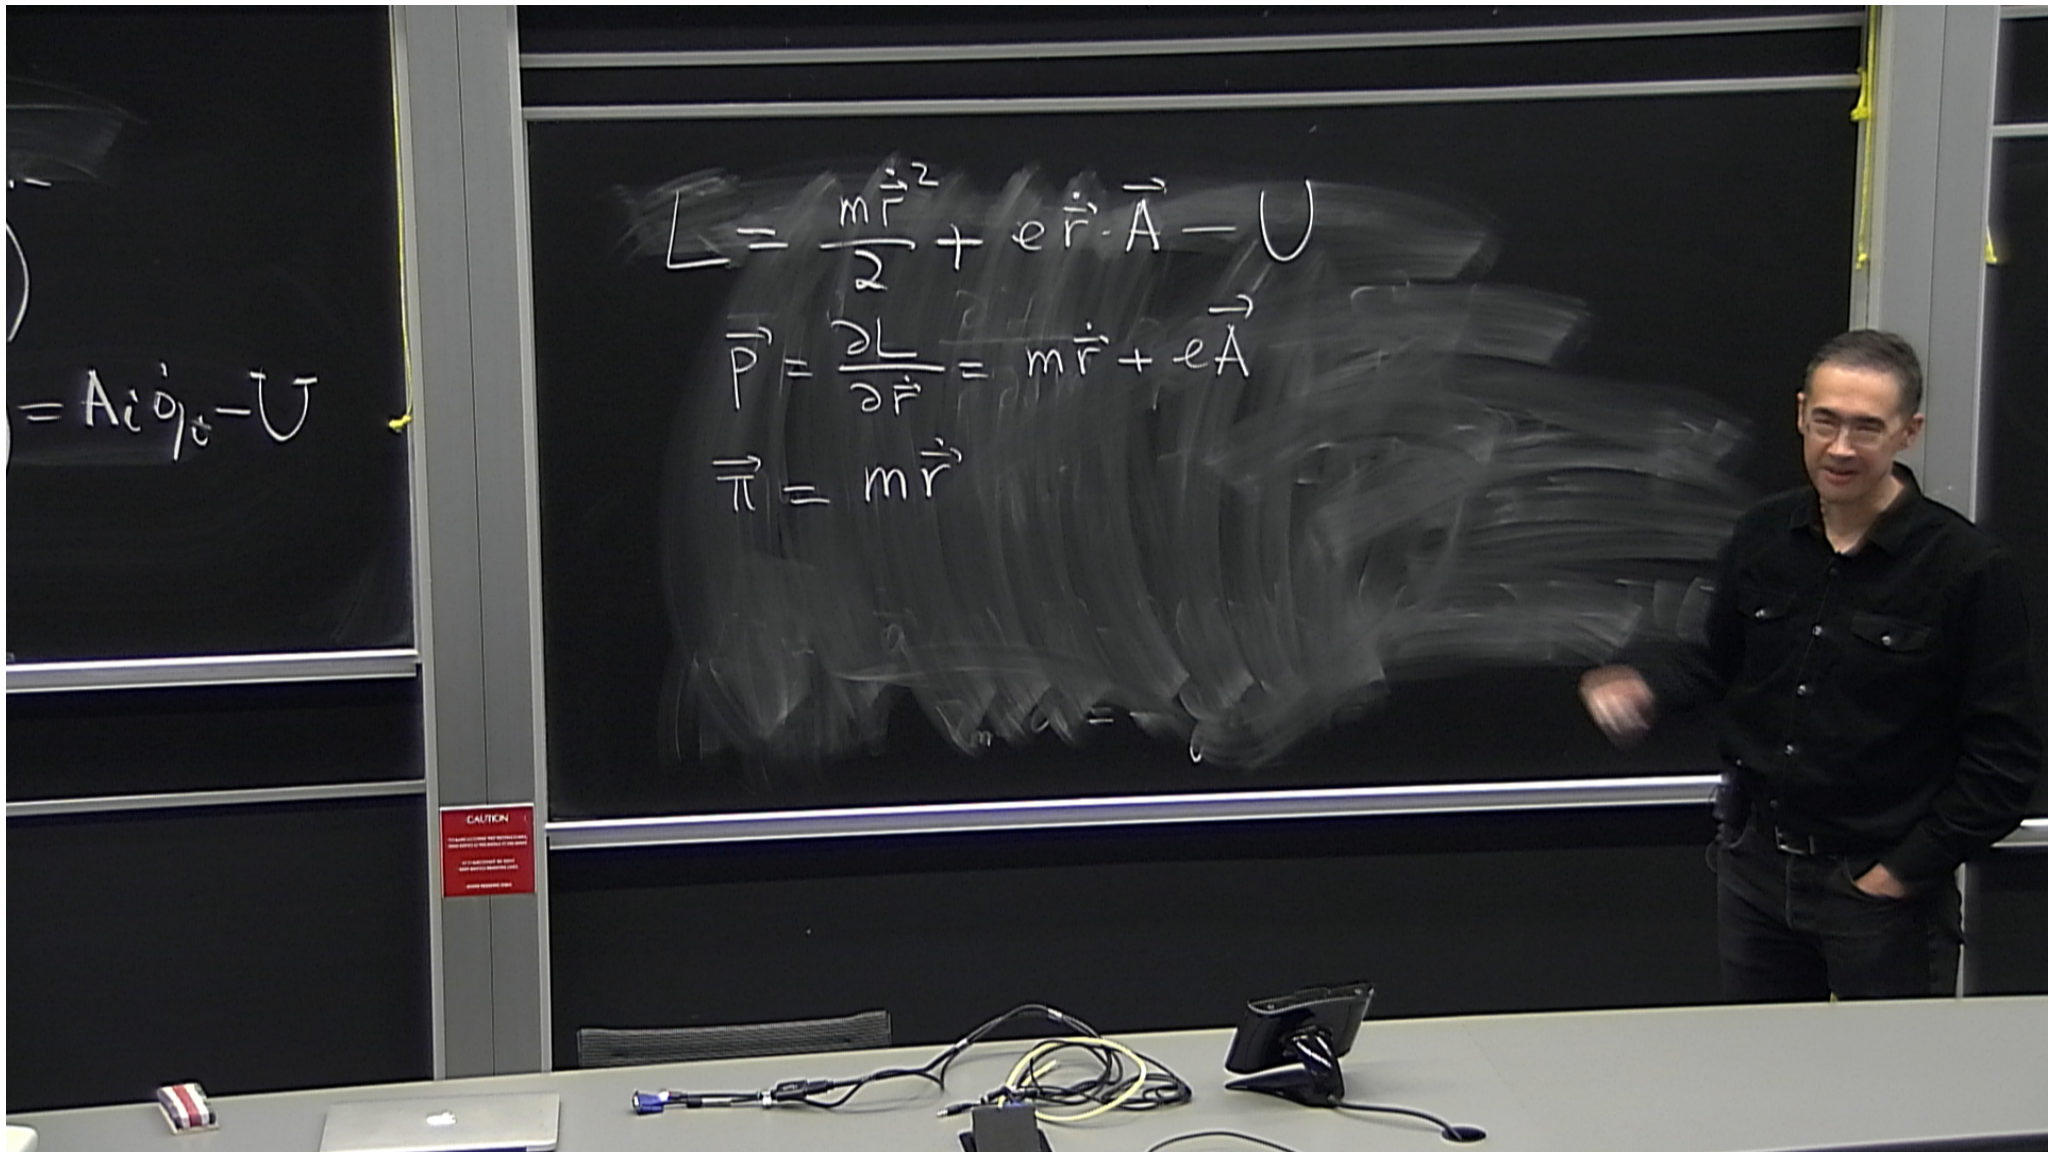 = Aᵢ q̇ᵢ − U
L = m\dot{\vec{r}}²/2 + e\dot{\vec{r}}·\vec{A} − U
\vec{p} = ∂L/∂\dot{\vec{r}} = m\dot{\vec{r}} + e\vec{A}
\vec{π} = m\dot{\vec{r}}
CAUTION